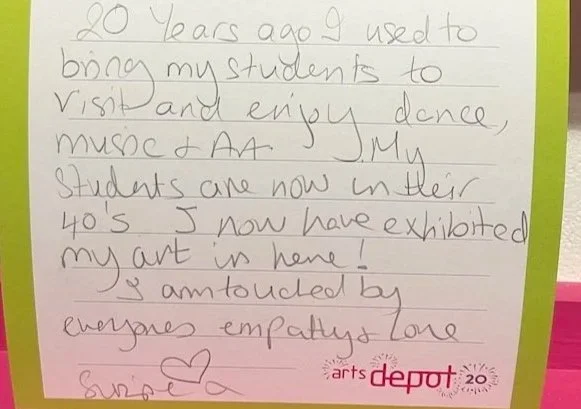 20 Years ago I used to
bring my students to
visit and enjoy dance,
music & Art. My
Students are now in their
40's. I now have exhibited
my art in here!
I am touched by
everyones empathy & love
arts depot 20